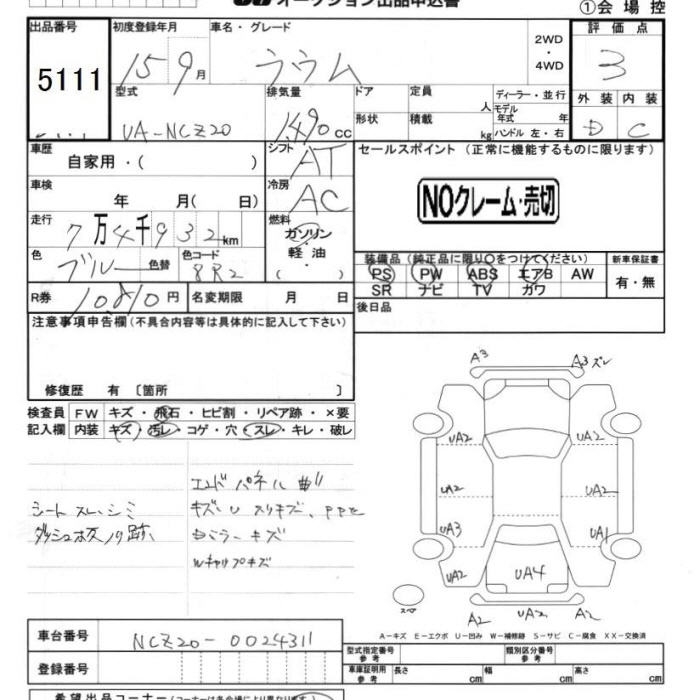 オークション出品申込書
①会場控
出品番号 初度登録年月 車名・グレード 2WD・4WD 評価点
5111 15 9月 ラウム 3
型式 排気量 ドア 定員 人 ディーラー・並行 外装 内装
UA-NCZ20 1490 cc 形状 積載 kg モデル年式 年 ハンドル 左・右 D C
車歴 シフト セールスポイント (正常に機能するものに限ります)
自家用・( ) AT
車検 冷房
年 月(日) AC NOクレーム・売切
走行 燃料
7万4千932km ガソリン・軽油・( )
色 色替 色コード 装備品 (純正品に限り○をつけてください) 新車保証書
ブルー 8R2 PS PW ABS エアB AW 有・無
SR ナビ TV カワ
R券 10,810円 名変期限 月 日 後日品
注意事項申告欄(不具合内容等は具体的に記入して下さい)
修復歴 有 〔箇所 〕
検査員 FW キズ・飛石・ヒビ割・リペア跡・×要
記入欄 内装 キズ・汚レ・コゲ・穴・スレ・キレ・破レ
エンドパネル
シート スレ、シミ キズ、U スリキズ、
ダッシュ ノリ跡、 キズ
Wキャップキズ
A3 A3 ズレ
UA2 UA2
UA2 UA2
UA3 UA1
UA2 UA4
スペア A2 UA2 A2
A-キズ E-エクボ U-凹み W-補修跡 S-サビ C-腐食 XX-交換済
車台番号 NCZ20-0024311
型式指定番号 参考 類別区分番号 参考
登録番号 車庫証明用 参考 長さ cm 幅 cm 高さ cm
希望出品コーナー